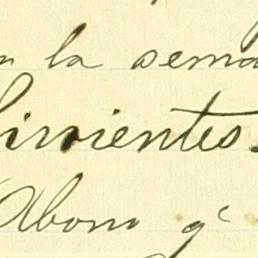 la sema
Sirvientes.
Abono g